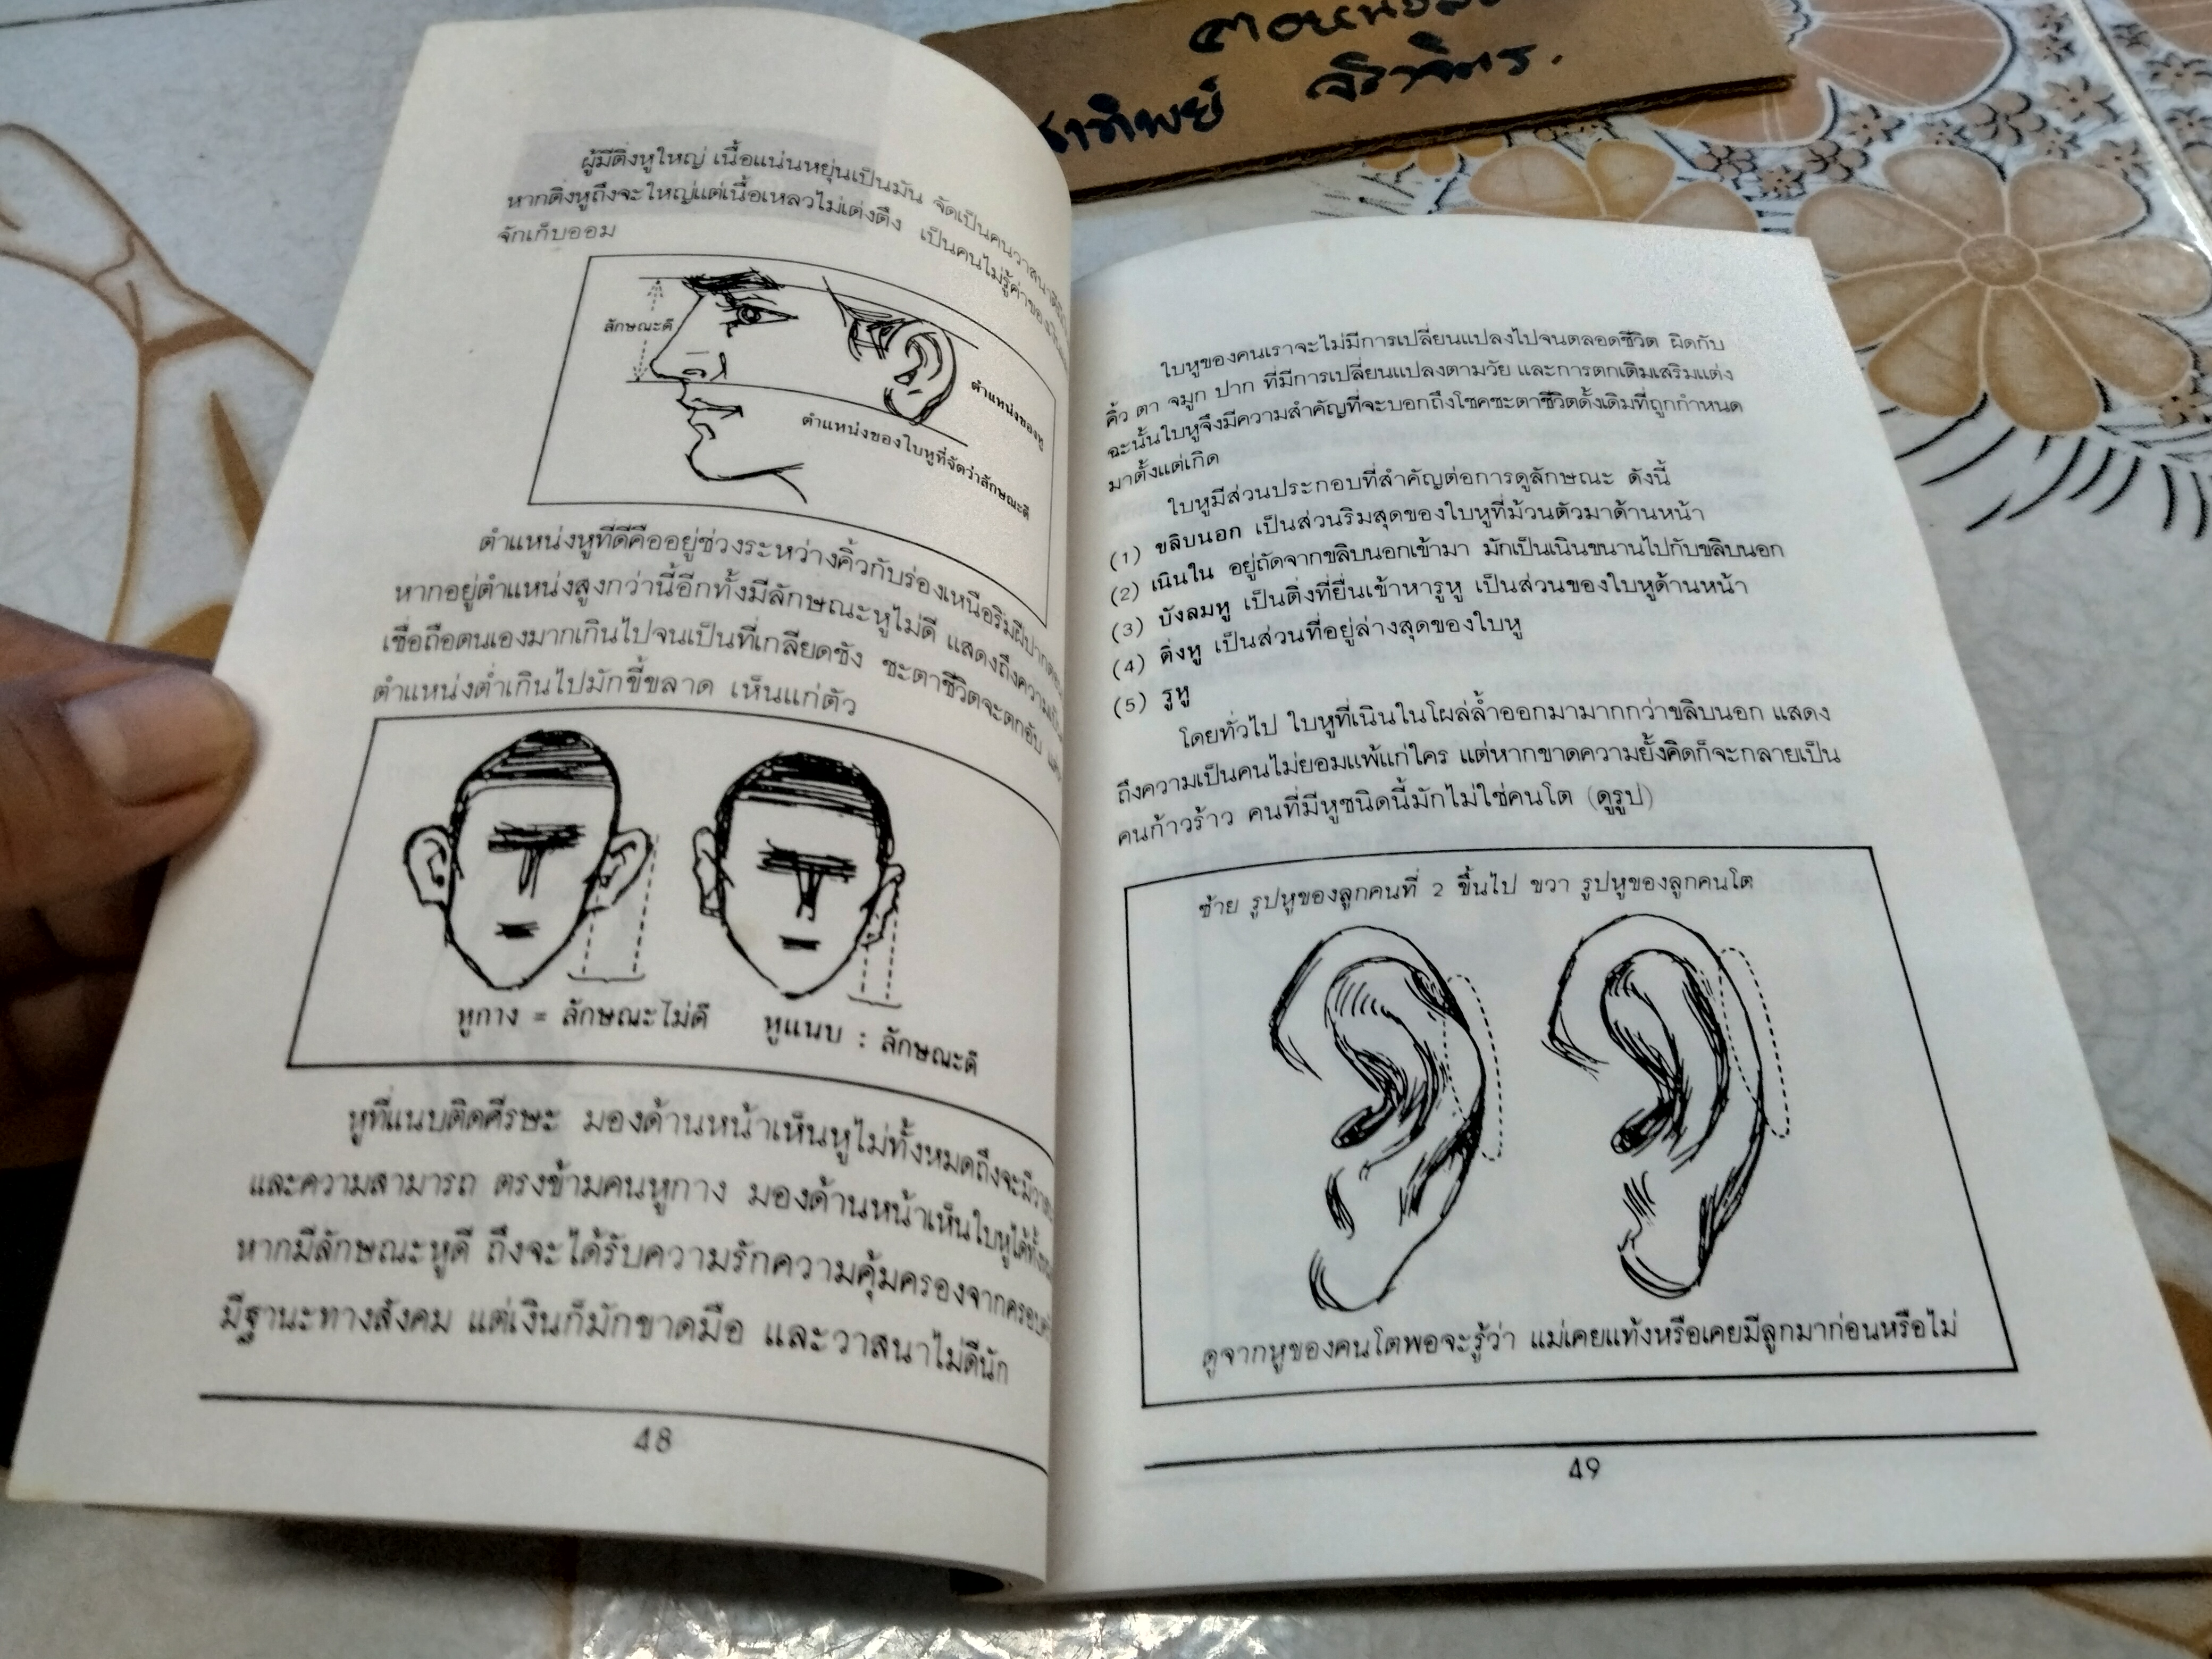 ผู้มีติ่งหูใหญ่ เนื้อแน่นหยุ่นเป็นมัน จัดเป็นคนวาสนาดี
หากติ่งหูถึงจะใหญ่แต่เนื้อเหลวไม่เต่งตึง เป็นคนไม่รู้ค่าของ
จักเก็บออม
ลักษณะดี
ตำแหน่งของหู
ตำแหน่งของใบหูที่จัดว่าลักษณะดี
ตำแหน่งหูที่ดีคืออยู่ช่วงระหว่างคิ้วกับร่องเหนือริมฝีปาก
หากอยู่ตำแหน่งสูงกว่านี้อีกทั้งมีลักษณะหูไม่ดี แสดงถึงความ
เชื่อถือตนเองมากเกินไปจนเป็นที่เกลียดชัง ชะตาชีวิตจะตกอับ
ตำแหน่งต่ำเกินไปมักขี้ขลาด เห็นแก่ตัว
หูกาง = ลักษณะไม่ดี หูแนบ : ลักษณะดี
หูที่แนบติดศีรษะ มองด้านหน้าเห็นหูไม่ทั้งหมดถึงจะมี
และความสามารถ ตรงข้ามคนหูกาง มองด้านหน้าเห็นใบหูได้
หากมีลักษณะหูดี ถึงจะได้รับความรักความคุ้มครองจาก
มีฐานะทางสังคม แต่เงินก็มักขาดมือ และวาสนาไม่ดีนัก
48
ใบหูของคนเราจะไม่มีการเปลี่ยนแปลงไปจนตลอดชีวิต ผิดกับ
คิ้ว ตา จมูก ปาก ที่มีการเปลี่ยนแปลงตามวัย และการตกเติมเสริมแต่ง
ฉะนั้นใบหูจึงมีความสำคัญที่จะบอกถึงโชคชะตาชีวิตดั้งเดิมที่ถูกกำหนด
มาตั้งแต่เกิด
ใบหูมีส่วนประกอบที่สำคัญต่อการดูลักษณะ ดังนี้
(1) ขลิบนอก เป็นส่วนริมสุดของใบหูที่ม้วนตัวมาด้านหน้า
(2) เนินใน อยู่ถัดจากขลิบนอกเข้ามา มักเป็นเนินขนานไปกับขลิบนอก
(3) บังลมหู เป็นติ่งที่ยื่นเข้าหารูหู เป็นส่วนของใบหูด้านหน้า
(4) ติ่งหู เป็นส่วนที่อยู่ล่างสุดของใบหู
(5) รูหู
โดยทั่วไป ใบหูที่เนินในโผล่ล้ำออกมามากกว่าขลิบนอก แสดง
ถึงความเป็นคนไม่ยอมแพ้แก่ใคร แต่หากขาดความยั้งคิดก็จะกลายเป็น
คนก้าวร้าว คนที่มีหูชนิดนี้มักไม่ใช่คนโต (ดูรูป)
ซ้าย รูปหูของลูกคนที่ 2 ขึ้นไป ขวา รูปหูของลูกคนโต
ดูจากหูของคนโตพอจะรู้ว่า แม่เคยแท้งหรือเคยมีลูกมาก่อนหรือไม่
49